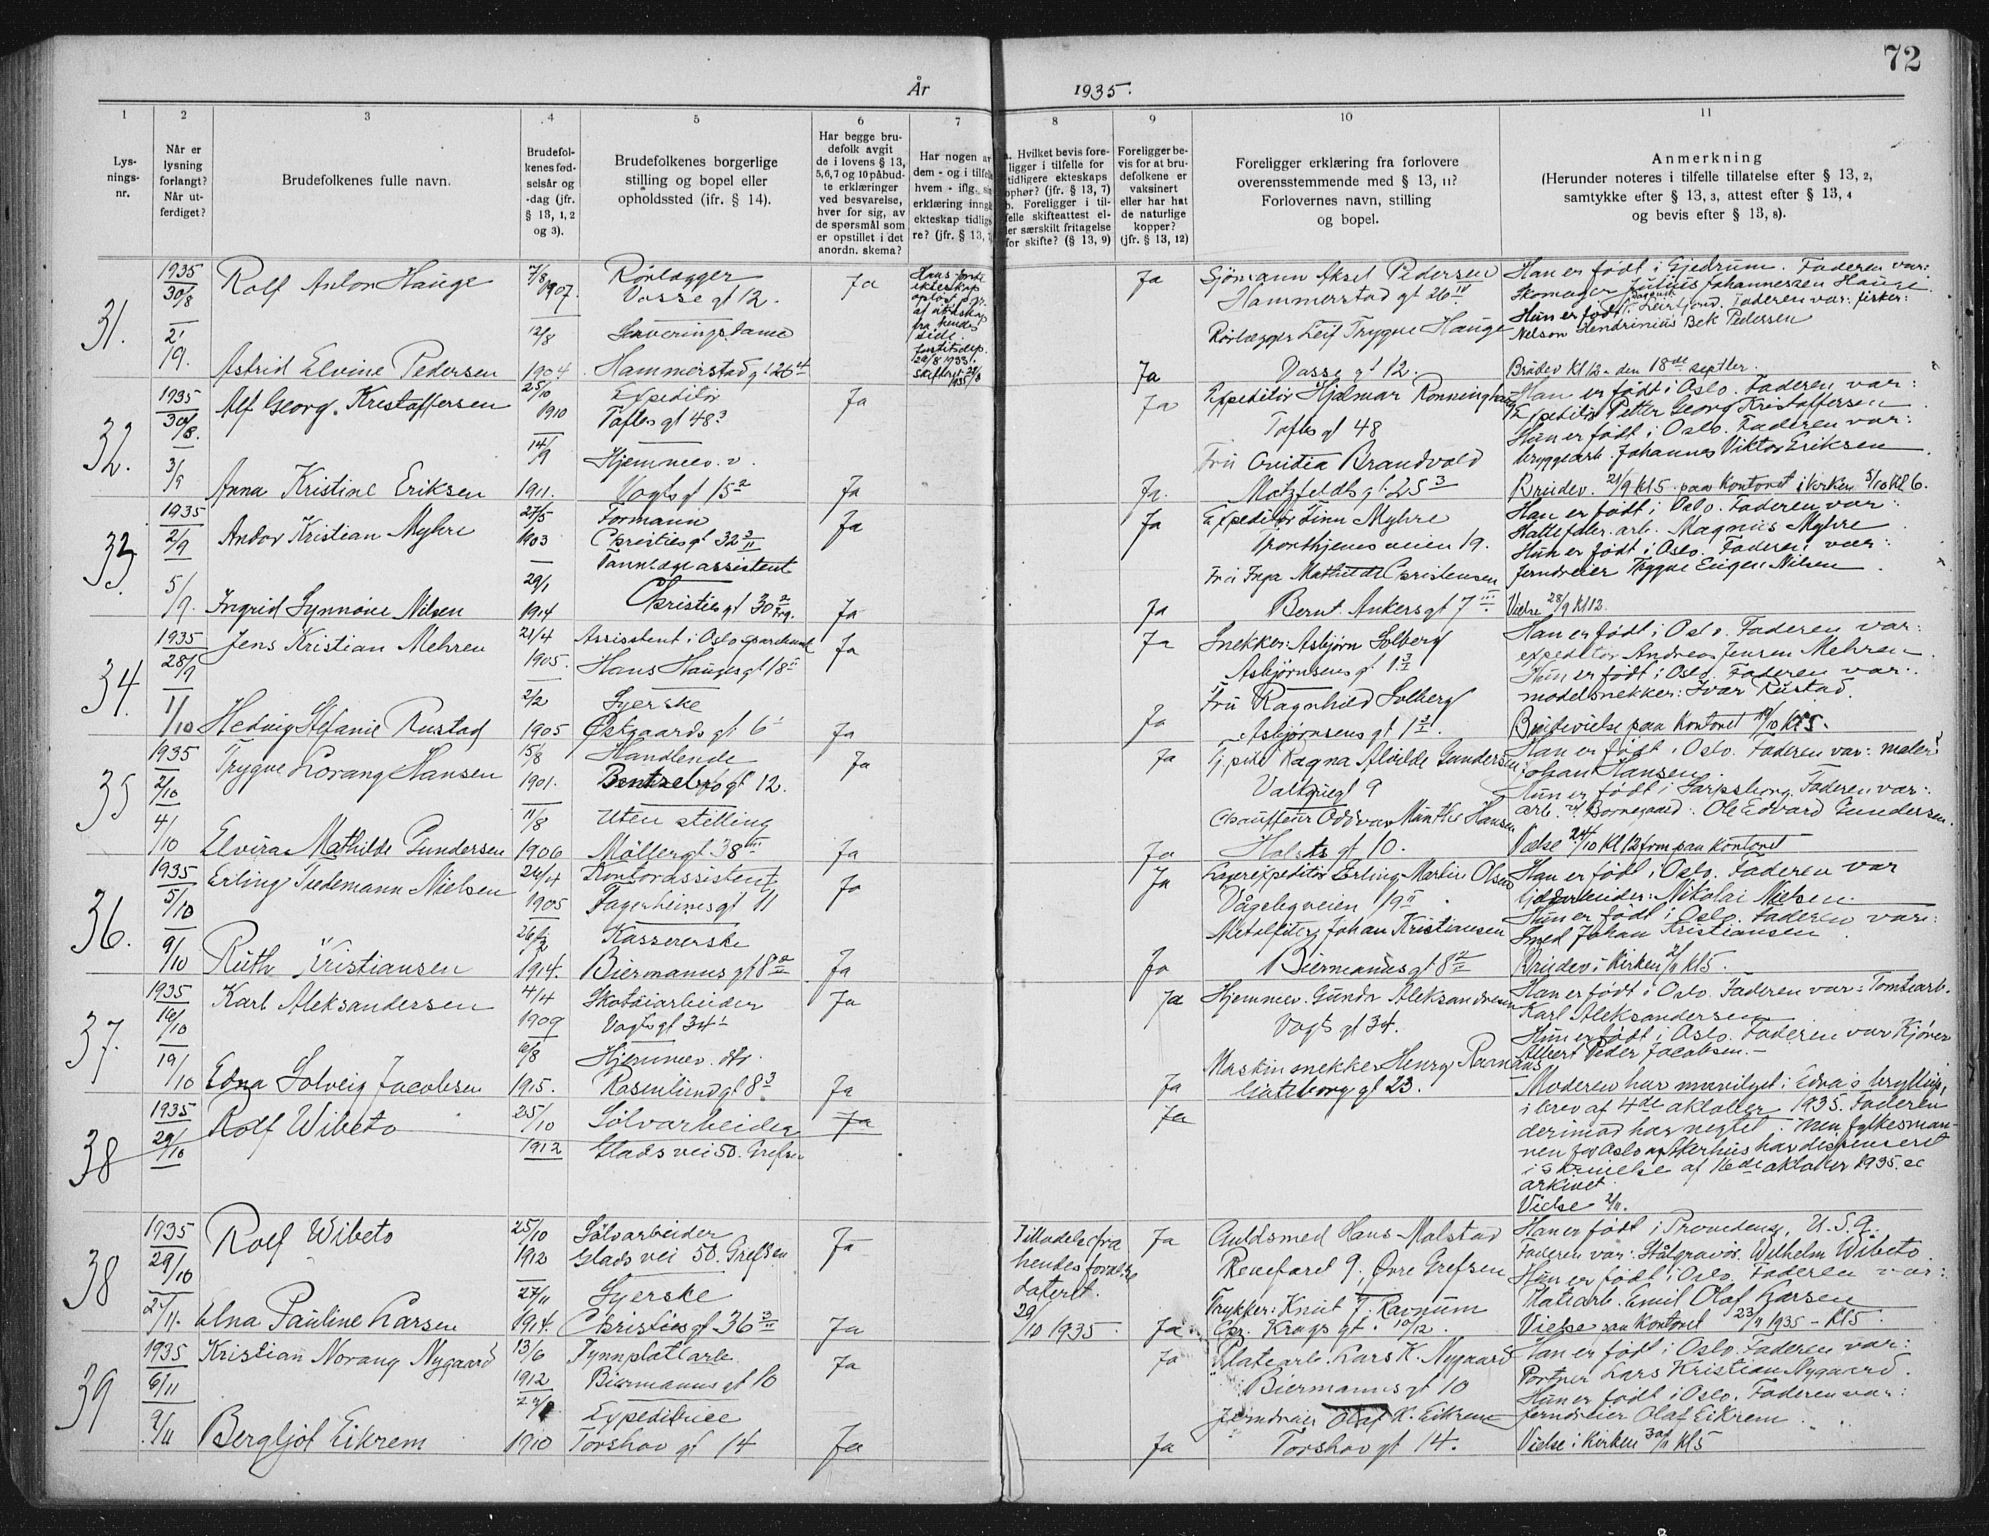 72
År 1935.
1
2
3
4
5
6
7
8
9
10
11
Lys-
nings-
nr.
Når er
lysning
forlangt?
Når ut-
ferdiget?
Brudefolkenes fulle navn.
Brudefol-
kenes fød-
selsår og
-dag (jfr.
§ 13, 1, 2
og 3).
Brudefolkenes borgerlige
stilling og bopel eller
opholdssted (ifr. § 14).
Har begge bru-
defolk avgit
de i lovens § 13,
5,6,7 og 10 påbud-
te erklæringer
ved besvarelse,
hver for sig, av
de spørsmål som
er opstillet i det
anordn. skema?
Har nogen av
dem - og i tilfelle
hvem - iflg.
erklæring inngå
ekteskap tidlig
re? (jfr. § 13, 7
a. Hvilket bevis fore-
ligger i tilfelle for
tidligere ekteskaps
ophør? (jfr. § 13, 7)
b. Foreligger i til-
felle skifteattest el-
ler særskilt fritagelse
for skifte? (§ 13, 9)
Foreligger be-
vis for at bru-
defolkene er
vaksinert
eller har hat
de naturlige
kopper?
(jfr. § 13, 12)
Foreligger erklæring fra forlovere
overensstemmende med § 13, 11?
Forlovernes navn, stilling
og bopel.
Anmerkning
(Herunder noteres i tilfelle tillatelse efter § 13, 2,
samtykke efter § 13, 3, attest efter § 13, 4
og bevis efter § 13, 8).
31.
1935
30/8
21/9.
Rolf Anton Hauge
7/8 1907.
Rørlægger
Vossegt 12.
Ja
Ja
Sjømann Aksel Pedersen
Hammerstad gt 26 IV
Han er født i Gjedrum. Faderen var:
Skomager Julius Johannessen Hauge
Hun er født i
Faderen var: fisker:
12/8
Serveringsdame
Rørlægger Leif Trygve Hauge
Nelson Hendrinius Bek Pedersen
Astrid Elvine Pedersen
1904
Hammerstad gt 26
Ja
Vosse gt 12.
Brudev kl 12 - den 18de septbr.
32.
1935
30/8.
3/9
Alf Georg Kristoffersen
25/10 1910
Expeditør
Toftes gt 48 3
Ja
Ja
Expeditør Hjalmar Rønninghaug
Toftes gt 48
Han er født i Oslo. Faderen var:
Expeditør Petter Georg Kristoffersen
Hun er født i Oslo. Faderen var:
14/9
Hjemmev.
Fru Ovidea Brandvold
bryggearb. Johannes Viktor Eriksen
Anna Kristine Eriksen
1911.
Vogts gt 15 2
Ja
Ja.
Motzfeldts gt 25 3
Brudev. 21/9 kl 5. paa kontoret i kirken 5/10 kl 6.
33.
1935
2/9
5/9.
Andor Kristian Myhre
27/5 1903
Formann
Christies gt 32 3/II
Ja
Ja
Expeditør Finn Myhre
Tronhjemsveien 19.
Han er født i Oslo. Faderen var:
Hattefabr. arb. Magnus Myhre
Hun er født i Oslo. Faderen var:
Tannlægeassistent
Fru Inga Mathilde Christensen
Jerndreier Trygve Eugen Nilsen
Ingrid Synnøve Nilsen
29/1 1914
Christies gt 30
Ja
Ja
Bernt Ankers gt 7 III
Vielse 28/9 kl 12.
34.
1935
28/9
1/10
Jens Kristian Mehren
21/4 1905.
Assistent i Oslo sparebank
Hans Hauges gt 18 II
Ja
Ja
Snekker: Asbjørn Solberg
Asbjørnsens gt 1 3/I
Han er født i Oslo. Faderen var:
expeditør Andreas Jensen Mehren
Hun er født i Oslo. Faderen var:
2/2
Syerske
Fru Ragnhild Solberg
modelsnekker: Ivar Rustad.
Hedvig Stefanie Rustad
1905
Østgaards gt 6
Ja
Ja
Asbjørnsens gt 1 3/I.
Brudevielse paa kontoret 19/10 kl 5.
35
1935
2/10
4/10
Trygve Lorang Hansen
15/8 1901.
Handlende
Bentsebro gt 12.
Ja
Ja
Ragna Alvilde Gundersen
gt 9
Han er født i Oslo. Faderen var: maler
Johan Hansen
Hun er født i Sarpsborg. Faderen var:
11/8
Uten stilling
Chauffeur Oddvar Münther Hansen
arb. v/ Borregaard. Ole Edvard Gundersen.
Elvira Mathilde Gundersen
1906
Møllergt 38 III
Ja
Ja
gt 10.
Vielse 24/10 kl 12 form paa kontoret
36.
1935
5/10
9/10
Erling Tidemann Nielsen
24/4 1905
Kontorassistent
Fagerheimsgt 11
Ja
Ja
Lagerexpeditør Erling Martin Olsen
Vågebyveien 19 II
Han er født i Oslo. Faderen var
Guldarbeider: Nikolai Nielsen.
Hun er født i Oslo. Faderen var:
Kassererske
Metalsliper Johan Kristiansen
Smed Johan Kristiansen
Ruth Kristiansen
1914.
Biermanns gt 8 2/II
Ja
Ja
Biermanns gt 8 2/II
Brudev i kirken 2/11 kl 5.
37.
1935
16/10
19/10
Karl Aleksandersen
4/4 1909
Skotøiarbeider
Vogts gt 34
Ja
Ja
Hjemmev. Gunda Aleksandersen
Vogts gt 34.
Han er født i Oslo. Faderen var: Tomtearb.
Karl Aleksandersen
Hun er født i Oslo. Faderen var Kjører
6/8
Hjemmev.
Maskinsnekker Henry Ravnaas
Albert Peder Jacobsen. -
Edna Solveig Jacobsen
1915.
Rosenlund gt 8 3
Ja
Ja
Gøteborg gt 23.
Moderen har samtykket i Edna's bryllup,
i brev af 4de oktober 1935. Faderen
derimod har negtet. Men fylkesman-
nen for Oslo og Akershus har dispenseret
i skrivelse af 16de oktober 1935. se
arkivet.
Vielse 2/11.
38
1935
29/10
Rolf Wibeto
25/10 1912
Sølvarbeider
Gladsvei 50. Grefsen
Ja
Ja
38
1935
29/10
2/11.
Rolf Wibeto
25/10 1912
Sølvarbeider
Gladsvei 50. Grefsen
Ja
Tilladelse fra
hendes foræld
dateret.
29/10 1935.
Ja
Guldsmed Hans Malstad
Revefaret 9. Øvre Grefsen
Han er født i Providens, U.S.A.
Faderen var: Stålgravør. Wilhelm Wibeto
Hun er født i Oslo. Faderen var:
27/11
Syerske
Trykker: Knut J. Ravnum
Platearb. Emil Olaf Larsen
Elna Pauline Larsen
1914.
Christies gt 36 3/II
Ja
Ja.
Krogs gt. 10/12.
Vielse paa kontoret 23/11 1935 - kl 5.
39
1935
6/11
9/11
Kristian Norang Nygaard
13/6 1912
Tynnplatearb.
Biermanns gt 10
Ja
Ja
Platearb. Lars K. Nygaard
Biermanns gt 10
Han er født i Oslo. Faderen var:
Portner Lars Kristian Nygaard.
Hun er født i Oslo. Faderen var:
Expeditrice
Jerndreier Olaf K. Eikrem
Jerndreier Olaf Eikrem
Bergljot Eikrem
1910
Torshov gt 14
Ja
Ja
Torshov gt 14.
Vielse i kirken 30/11 kl 5